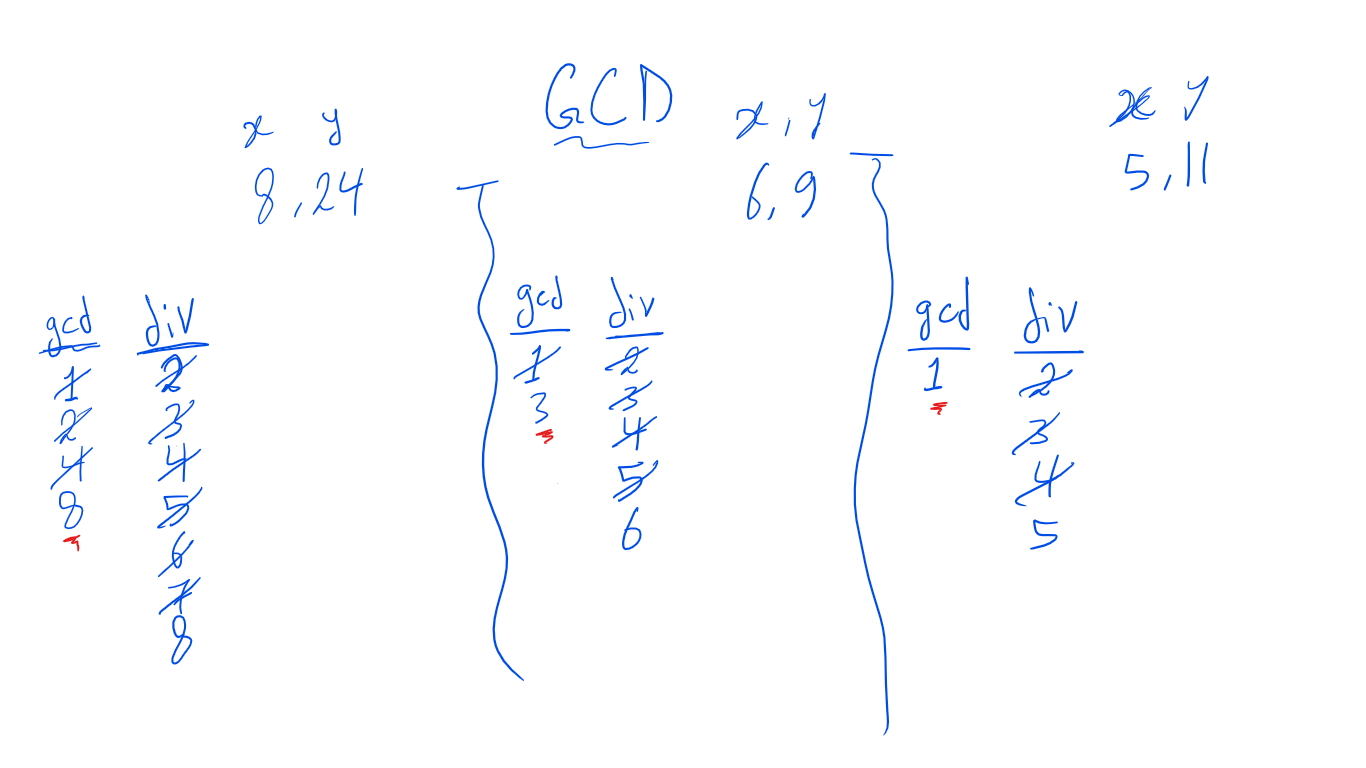 GCD
x y
8, 24
gcd div
1 2
2 3
4 4
8 5
6
7
8
x, y
6, 9
gcd div
1 2
3 3
4
5
6
x y
5, 11
gcd div
1 2
3
4
5